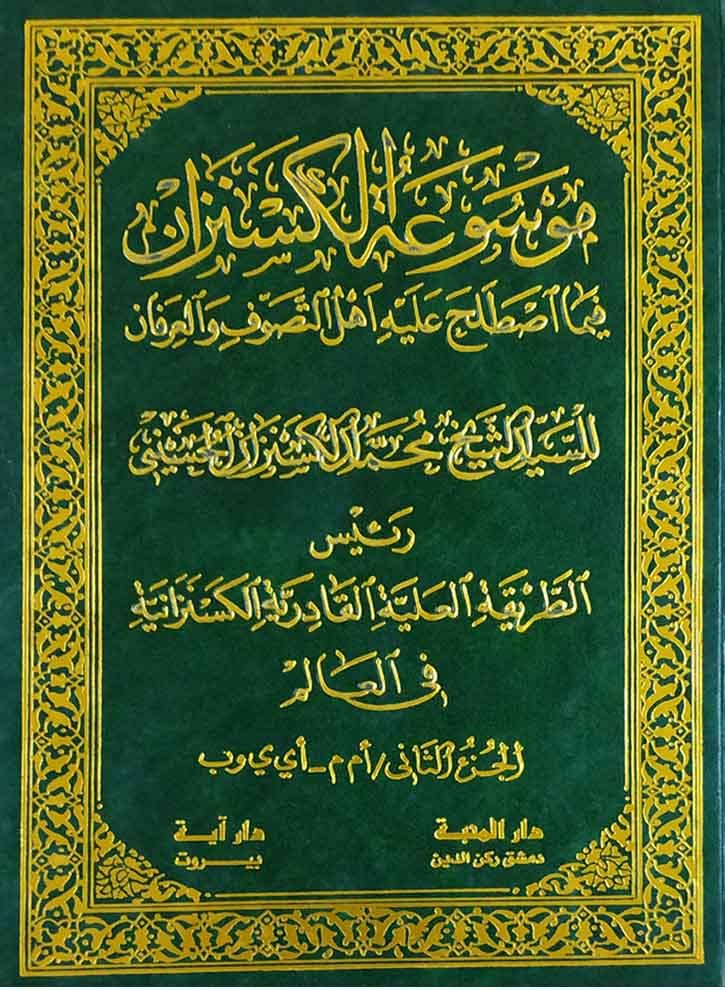 موسوعة الكسنزان
فيما اصطلح عليه أهل التصوف والعرفان
للسيد الشيخ محمد الكسنزان الحسيني
رئيس
الطريقة العلية القادرية الكسنزانية
في العالم
الجزء الثاني / أ م م - أ ي ي و ب
دار المحبة
دمشق ركن الدين
دار آية
بيروت